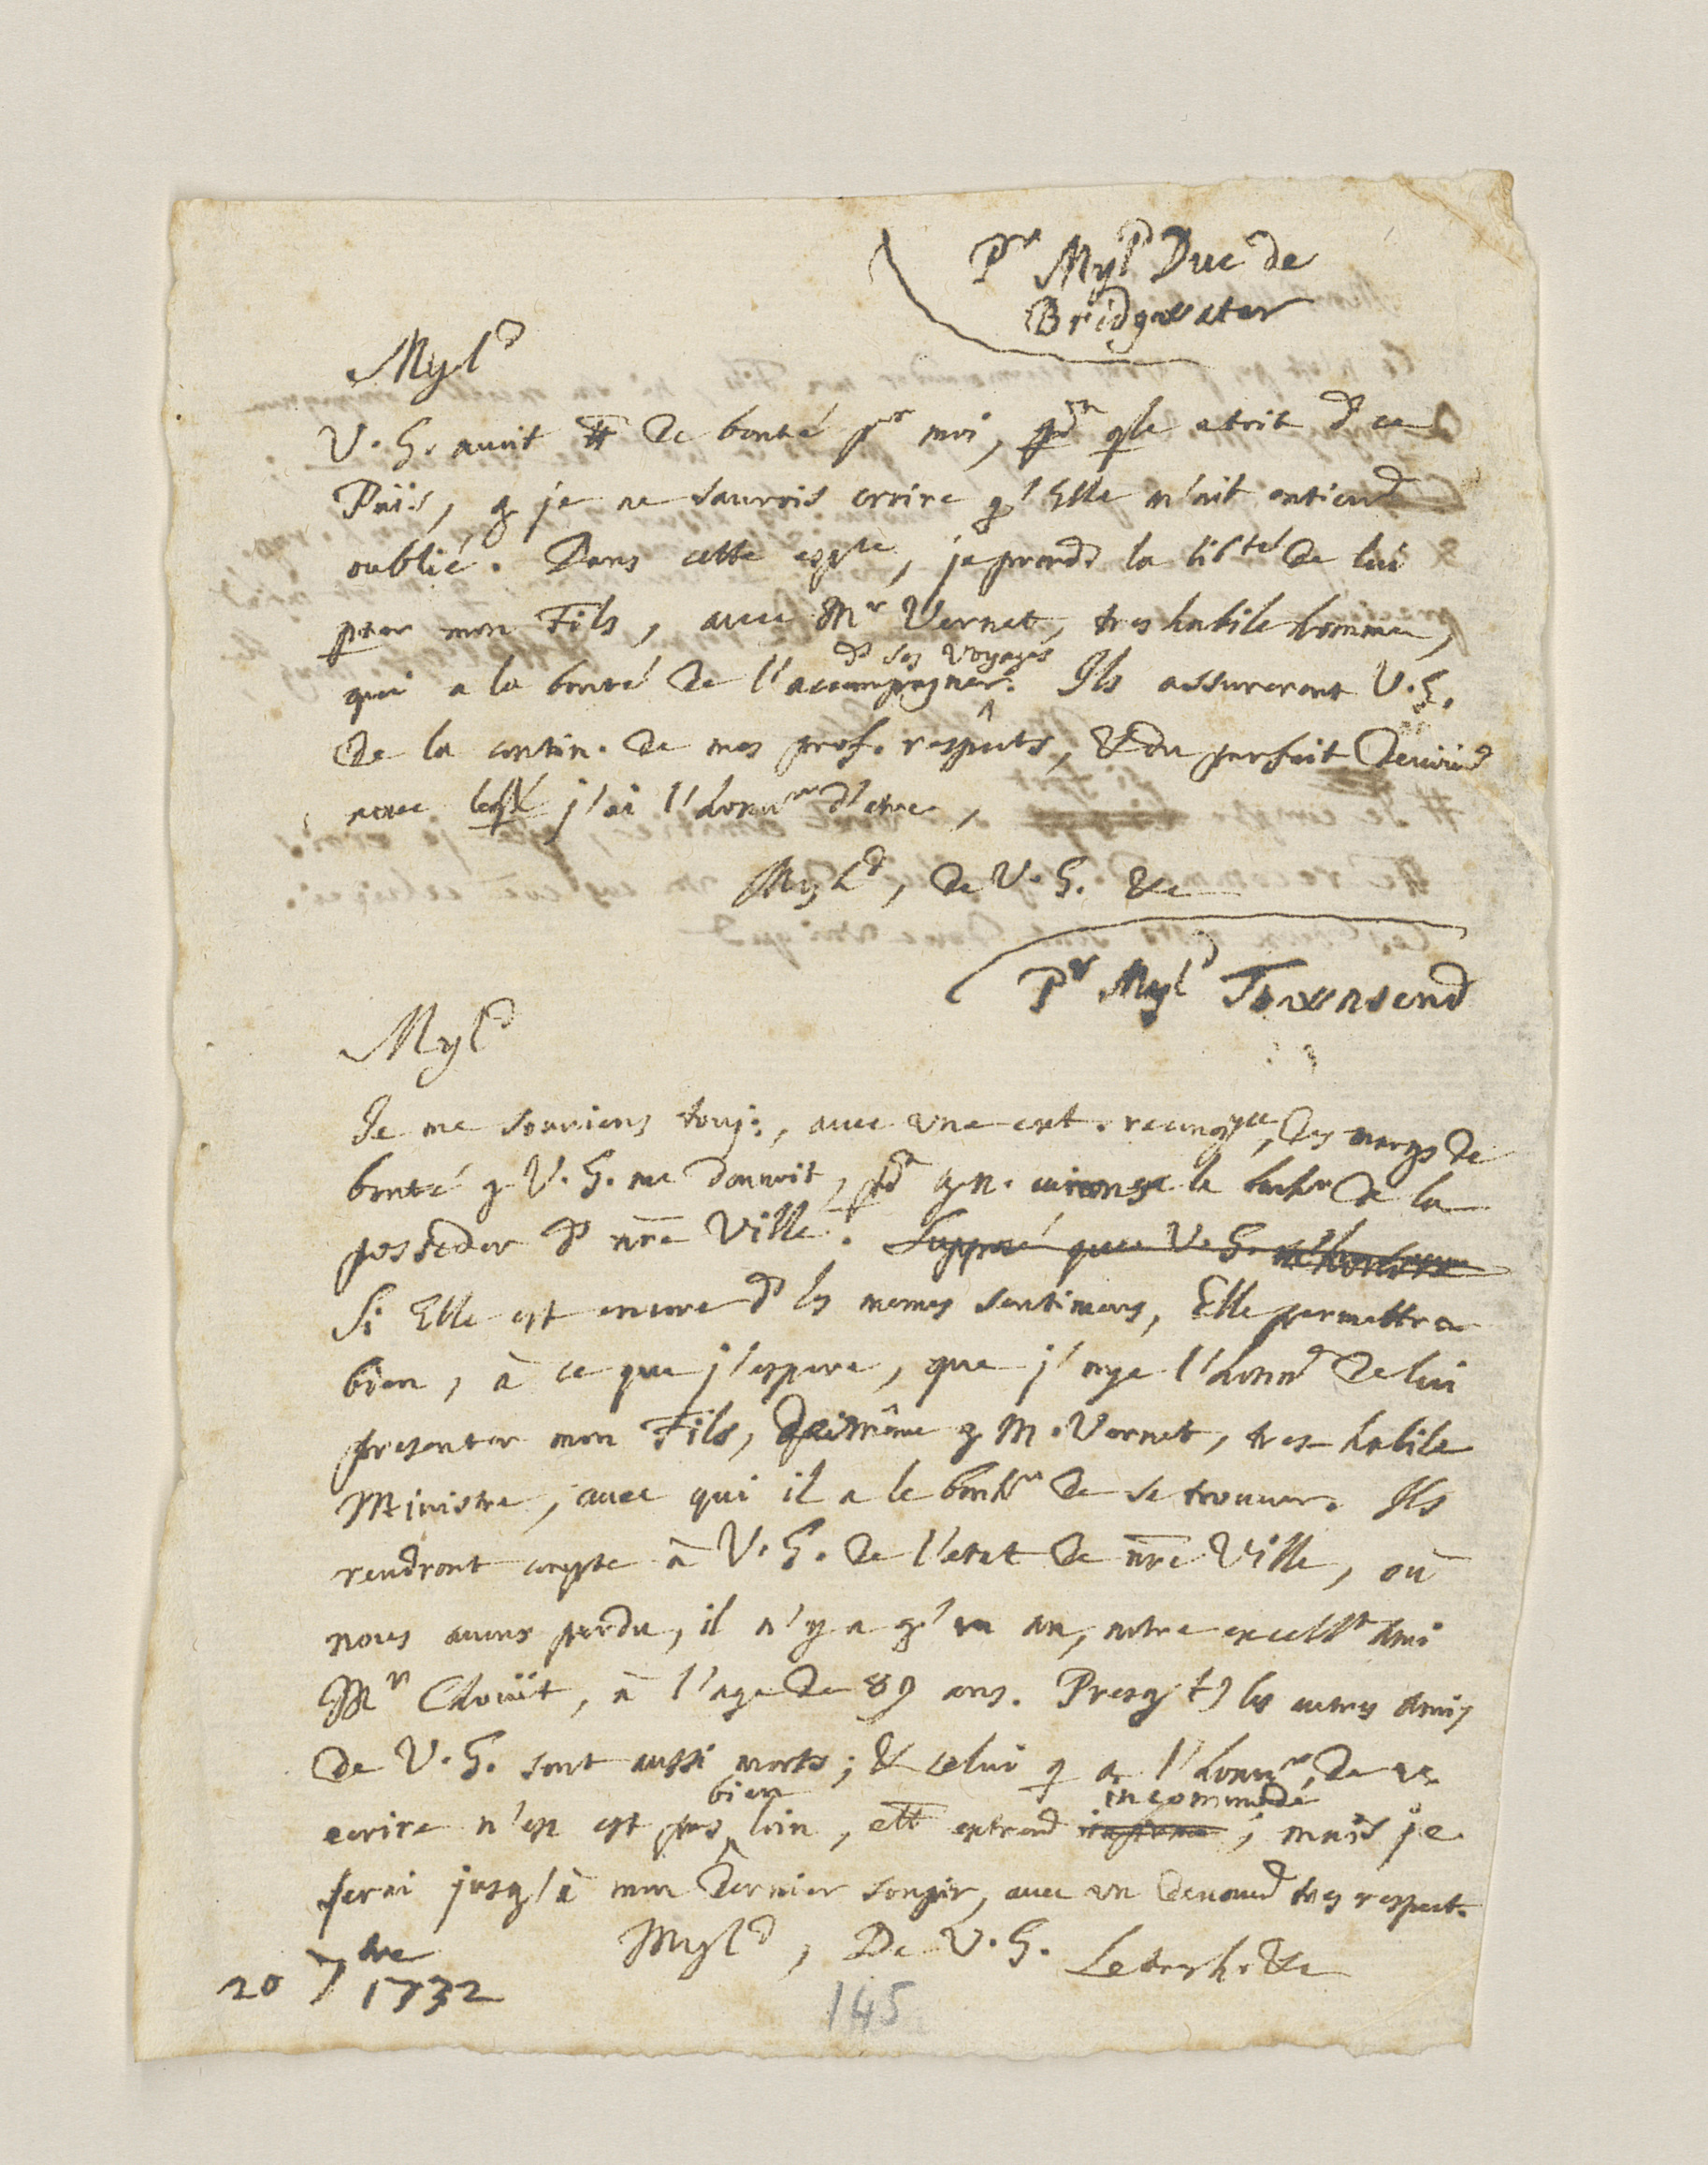 Pr Myld Duc de
Bridgwater
Myld
V. G. avoit tt de bonté pr moi, pdt qle etoit ds ce
Païs, q je ne saurois croire q'Elle m'ait entieremt
oublié. Dans cette espce, je prends la libté de lui
pter mon Fils, avec Mr Vernet, tres habile homme,
ds ses voyages
qui a la bonté de l'accompagner. Ils assureront V. G.
de la contin. de mes prof. respects, & du parfait devoumt
avec leql j'ai l'honnr d'etre,
Myld, de V. G. &c
Pr Myld Townsend
Myld
Je me souviens touj., avec une ext. recongce, des margs de
bonté q V. G. me donnoit, pdt q n. avions le bonhr de la
posseder ds nre Ville. Supposé que V. G. m'honore
Si Elle est encore ds les memes sentimens, Elle permettra
bien, à ce que j'espere, que j'aye l'honnr de lui
presenter mon Fils, de même q M. Vernet, tres habile
Ministre, avec qui il a le bonhr de se trouver. Ils
rendront compte à V. G. de l'etat de nre Ville, où
nous avons perdu, il n'y a q'un an, notre excellt Ami
Mr Chouët, à l'age de 89 ans. Presq ts les autres Amis
de V. G. sont aussi morts; & celui q a l'honnr, de v.
bien incommodé
ecrire n'en est pas loin, ett extremt infirme; mais je
serai jusq'à mon dernier soupir, avec un devoumt tres respect.
Myld, De V. G. Le tres h. &c
20 7bre 1732
145